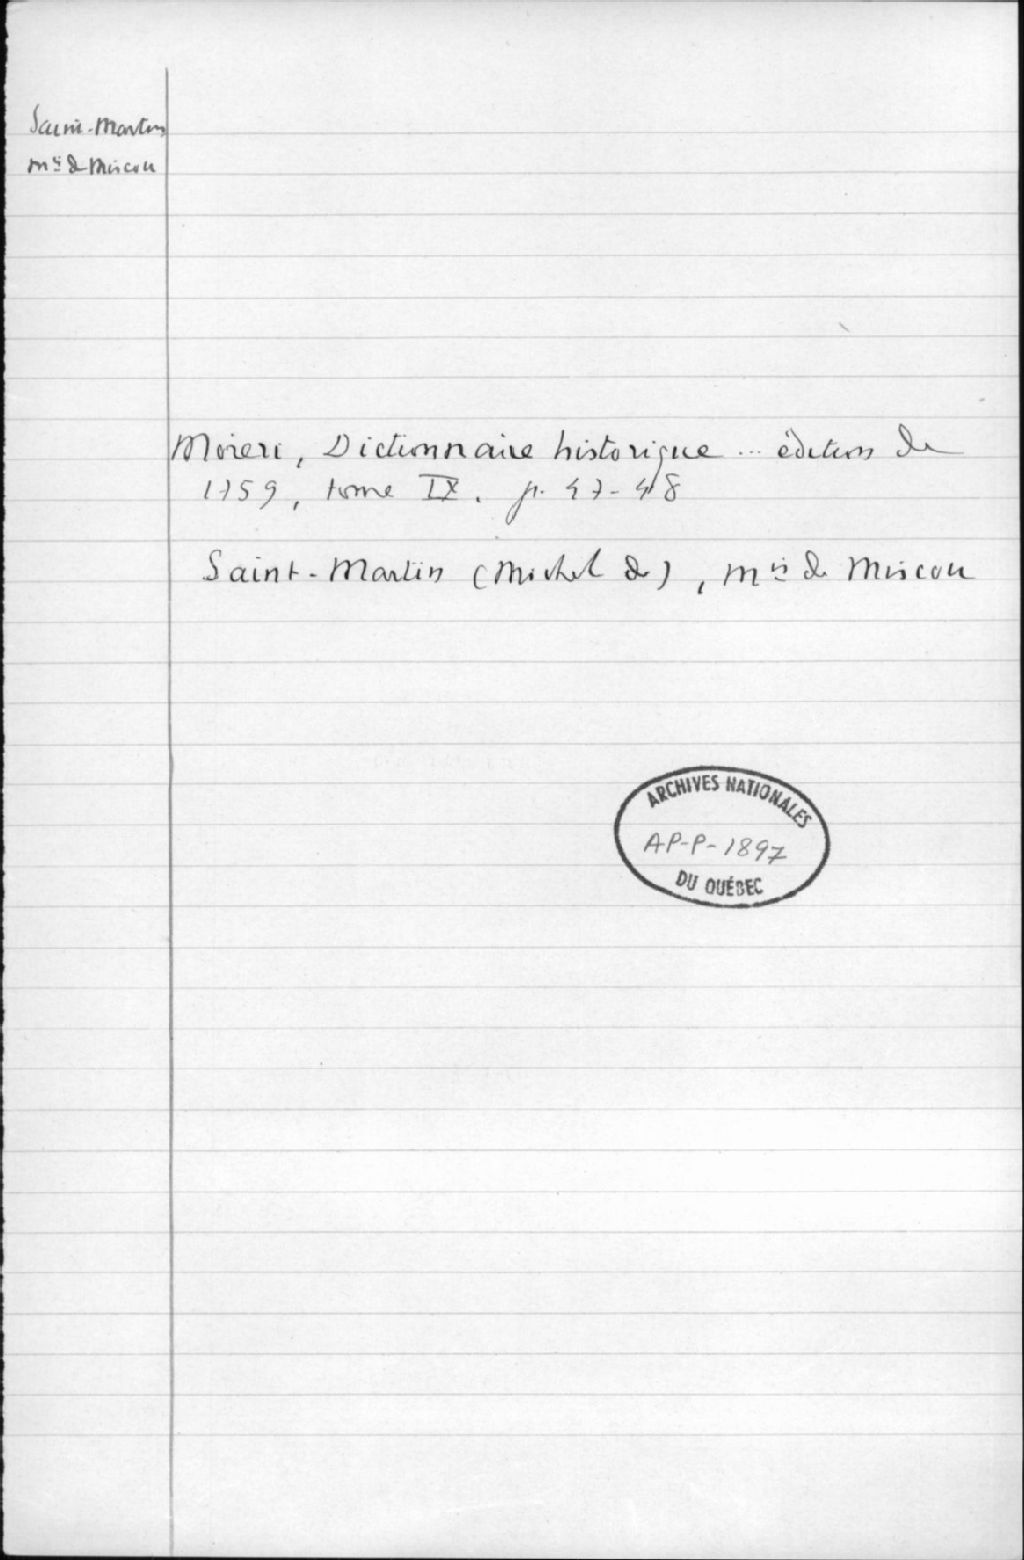 Saint-Martin
mis de Miscou
Moreri, Dictionnaire historique ... édition de
1759, tome IX. p. 47-48
Saint-Martin (Michel de), mis de Miscou
ARCHIVES NATIONALES
AP-P-1897
DU QUÉBEC